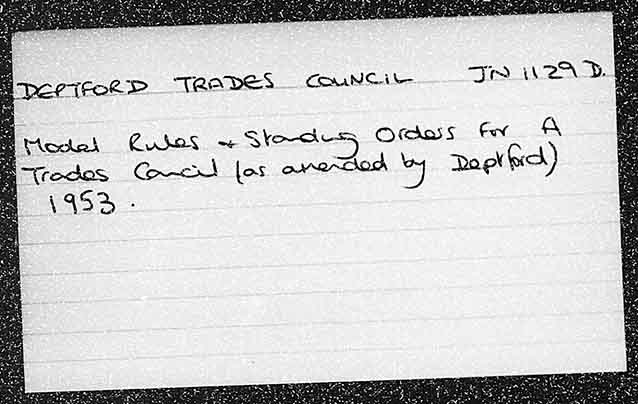 DEPTFORD TRADES COUNCIL JN 1129 D.
Model Rules + Standing Orders For A
Trades Council (as amended by Deptford)
1953.